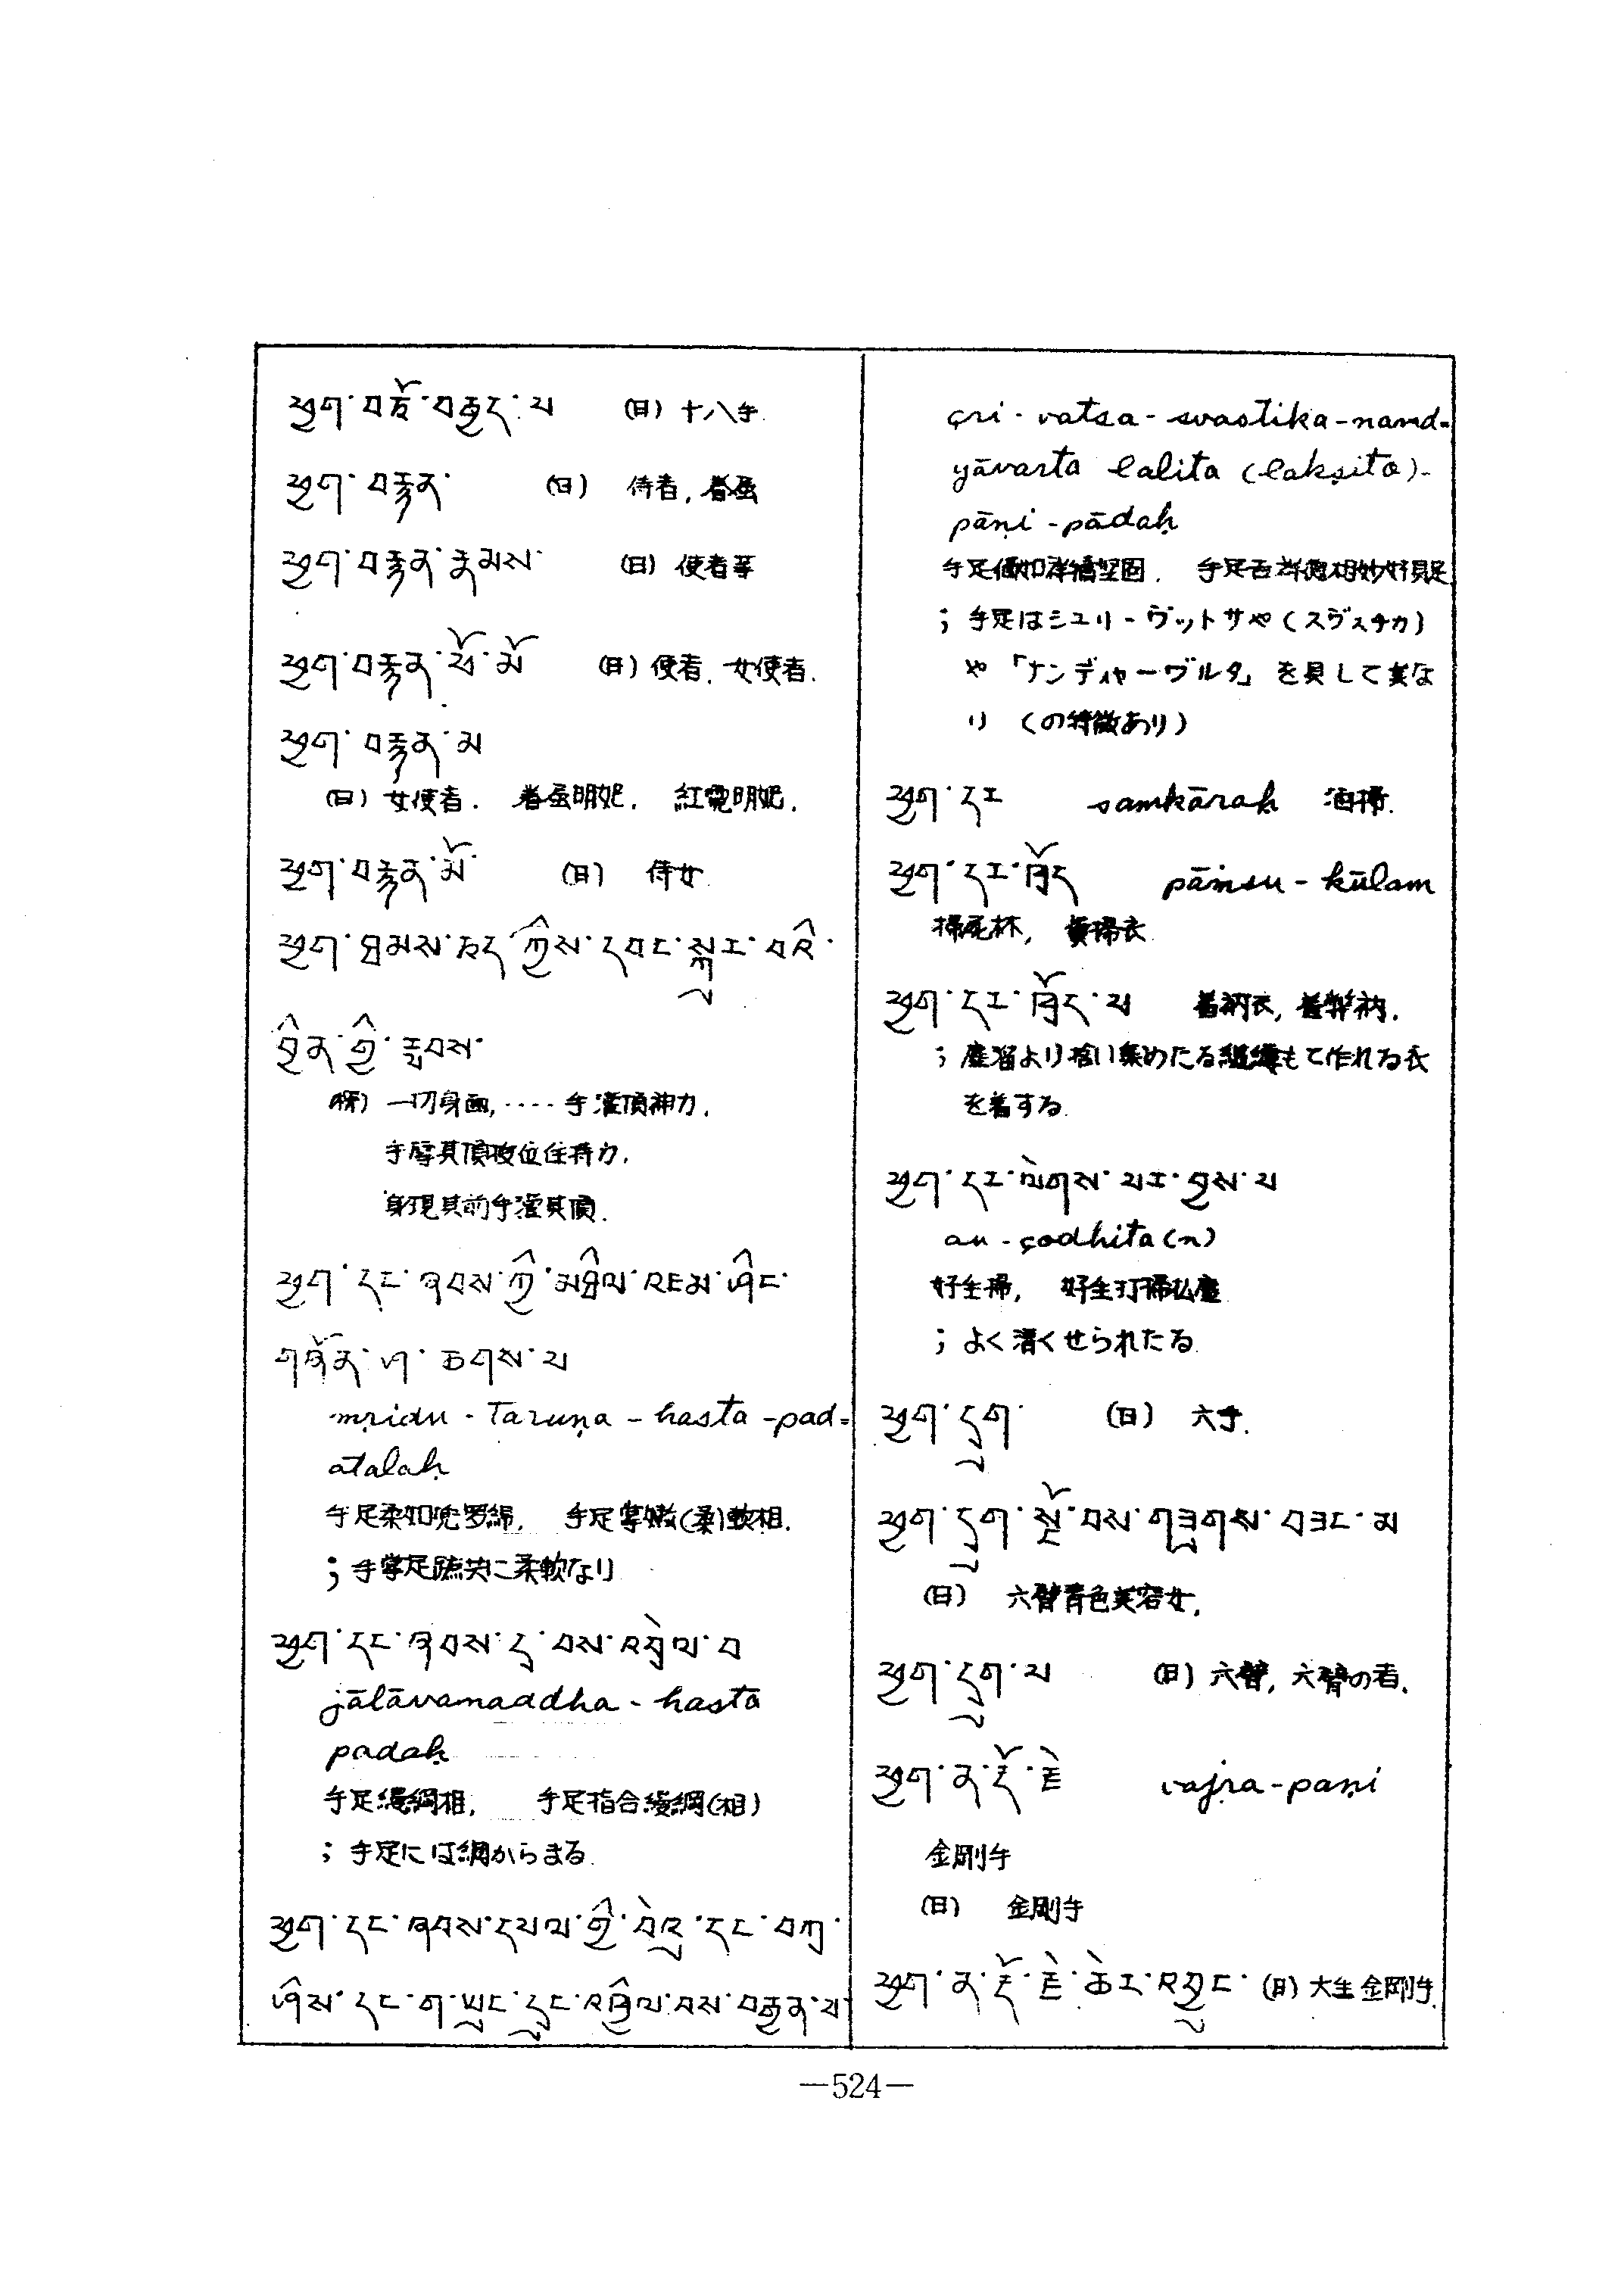 ཕྱག་བཅོ་བརྒྱད་པ (日) 十八手
ཕྱག་བརྙན་ (日) 侍者,
ཕྱག་བརྙན་རྣམས་ (日) 使者等
ཕྱག་བརྙན་ཕོ་མོ (日) 使者, 女使者.
ཕྱག་བརྙན་མ
(日) 女使者.
ཕྱག་བརྙན་མོ་ (日) 侍女.
ཕྱག་ཐམས་ཅད་ཀྱིས་དབང་སྐུར་བའི་
བྱིན་གྱི་རླབས་
一切身面, ‥‥ 手灌頂神力.
手摩其頂 位住持力.
身現其前手灌其頂.
ཕྱག་དང་ཞབས་ཀྱི་མཐིལ་འཇམ་ཤིང་
གཞོན་ཤ་ཆགས་པ
mṛidu - Taruṇa - hasta - pad-
atalaḥ
手足柔如兜罗綿, 手足掌嫩(柔)軟相.
; 手掌足蹠共に柔軟なり
ཕྱག་དང་ཞབས་དྲ་བས་འབྲེལ་བ
jālāvanaddha - hasta
padaḥ
手足縵網相, 手足指合縵網(相)
; 手足には網からまる.
ཕྱག་དང་ཞབས་དཔལ་གྱི་བེའུ་དང་བཀྲ་
ཤིས་དང་ག་ཡུང་དྲུང་འཁྱིལ་བས་བརྒྱན་པ་
çri - vatsa - svastika - namd-
yāvarta lalita (lakṣita) -
pāṇi - pādaḥ
; 手足はシユリ-ヴットサや (スヴスチカ)
や「ナンディヤーヴルタ」を具して美な
り (の特徴あり)
ཕྱག་དར saṃkāraḥ
ཕྱག་དར་ཁྲོད pāṃsu - kūlam
糞掃衣.
ཕྱག་དར་ཁྲོད་པ 着衲衣,
; 塵溜より拾い集めたる もて作れる衣
を着する.
ཕྱག་དར་ལེགས་པར་བྱས་པ
su - çodhita (n)
好生掃, 好生打掃払塵
; よく清くせられたる.
ཕྱག་དྲུག་ (日) 六手.
ཕྱག་དྲུག་སྔོ་བས་གཟུགས་བཟང་མ
(日) 六臂青色美容女.
ཕྱག་དྲུག་པ (日) 六臂, 六臂の者.
ཕྱག་ན་རྡོ་རྗེ vajra - paṇi
金剛手
(日) 金剛手
ཕྱག་ན་རྡོ་རྗེ་ཆེར་འབྱུང་ (日) 大生金剛手.
—524—